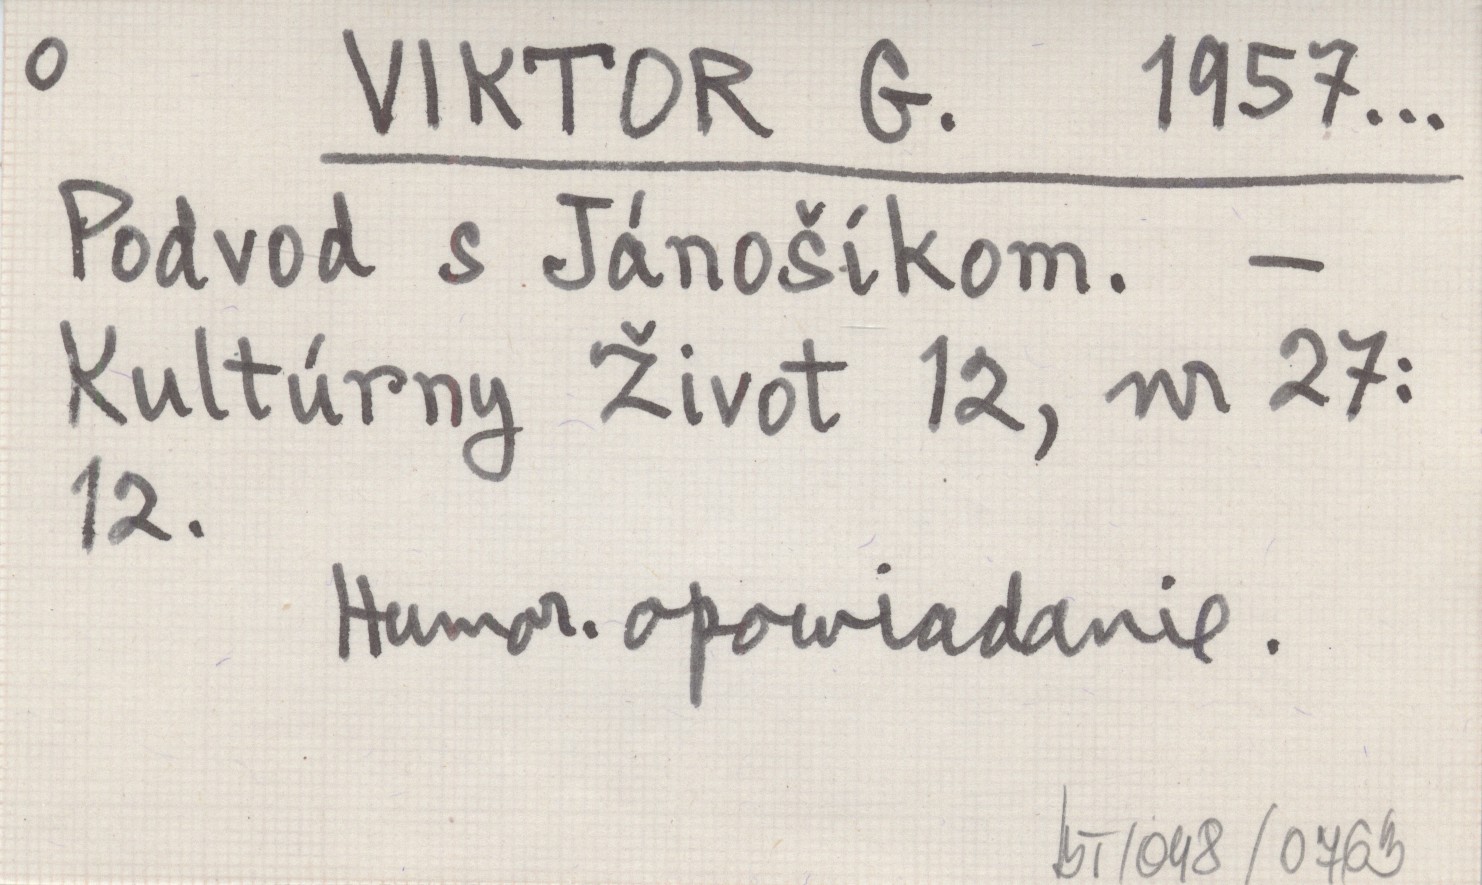 o VIKTOR G. 1957...
Podvod s Jánošíkom. –
Kultúrny Život 12, nr 27:
12.
Humor. opowiadanie.
/048/0763